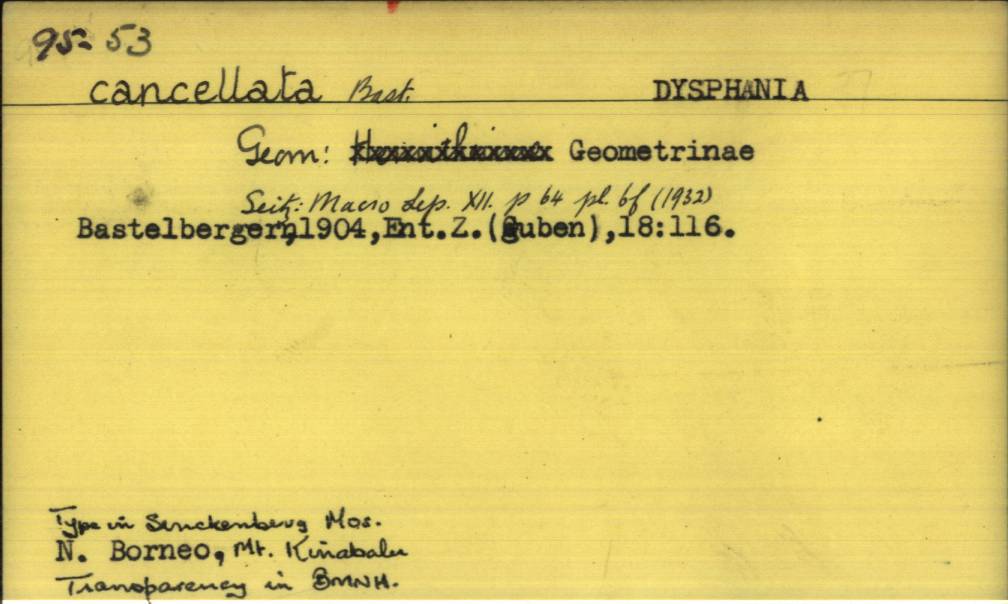 95-53
cancellata Bast. DYSPHANIA
Geom: Geometrinae
Seitz: Macro Lep. XII. p 64 pl. 6f (1932)
Bastelberger, 1904, Ent.Z.(Guben), 18:116.
Type in Senckenberg Mus.
N. Borneo, Mt. Kinabalu
Transparency in BMNH.